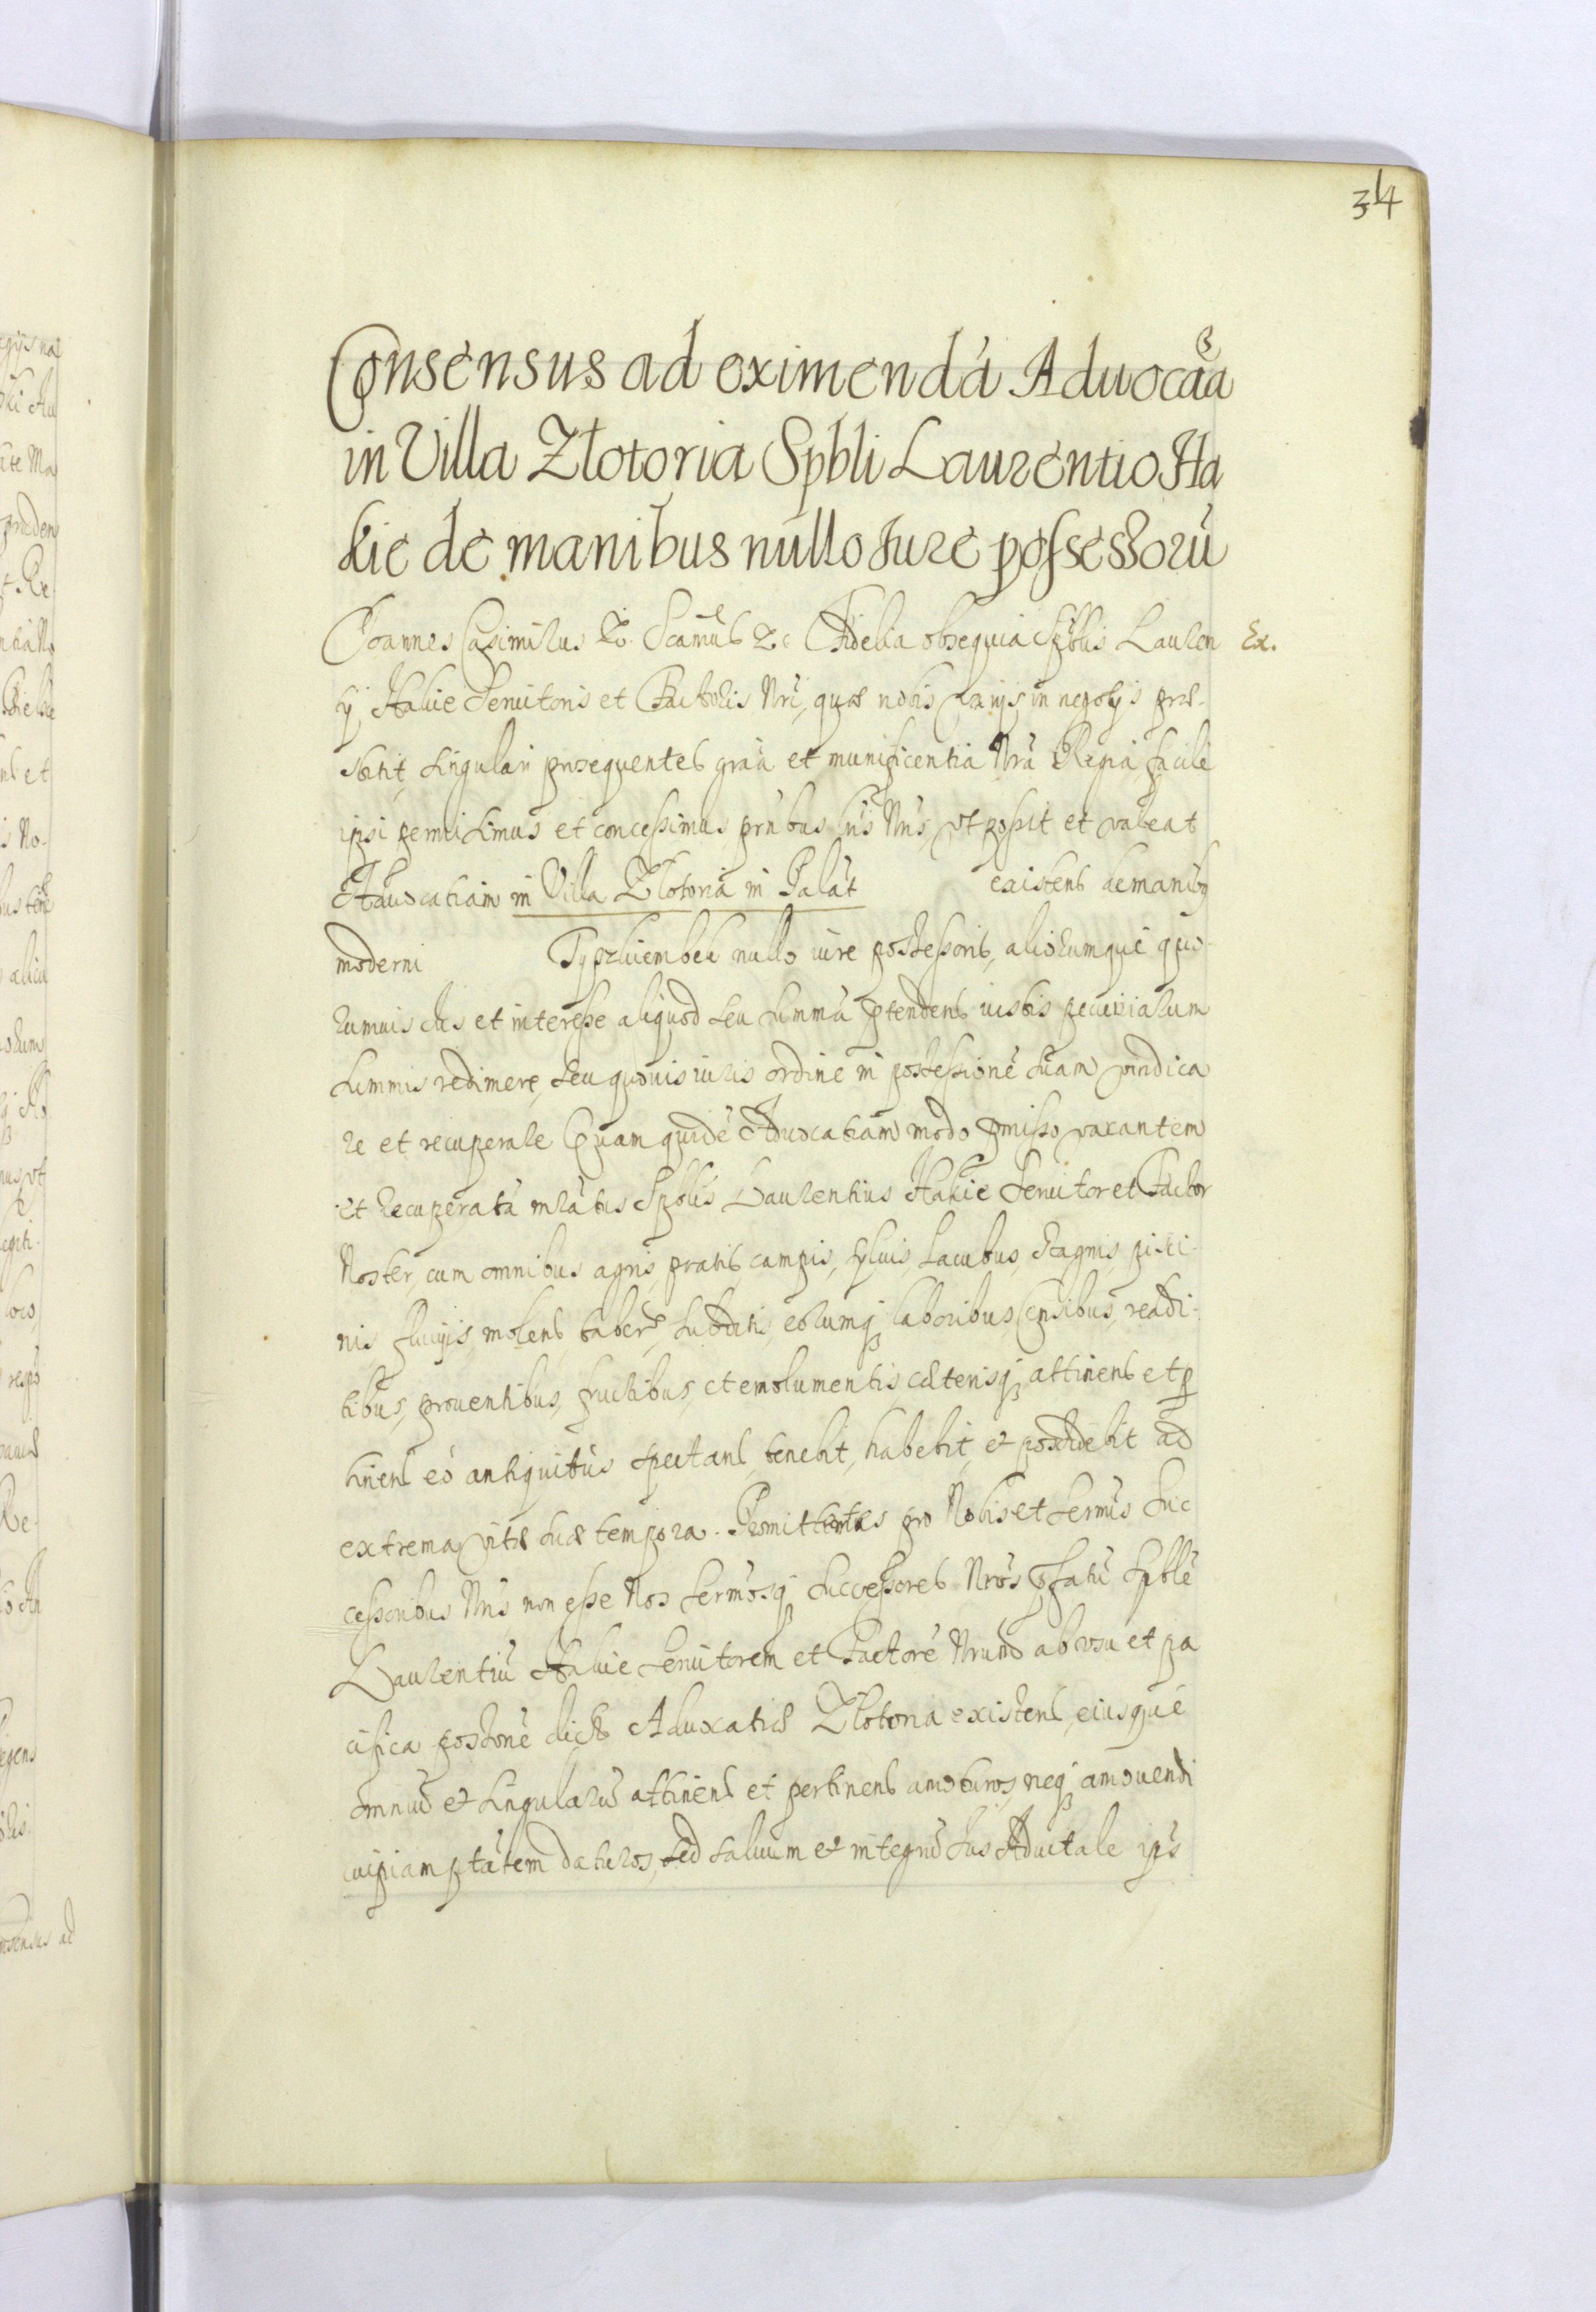 34
Consensus ad eximendá Aduocãa
in Villa Zlotoria Spbli Laurentio Ha
kie de manibus nullo Jure possessorũ
Joannes Casimirus &c. Scamûs &c Fidelia obsequia Spblis Lauren
Ex.
tij Hakie Seruitoris et Factoris Nri, quæ nobis varijs in negotijs præ-
stitit, singulari prosequentes grãa et munificentia Nrã Regia facile
ipsi permisimus et concessimus, prñtbus Lris Nris, vt possit et valeat
Aduocatiam in Villa Zlotoria in Palãt existens de manibq
moderni Typszluiembek nullo iure possessoris, aliorumque quo-
rumuis ius et interesse aliquod seu summã ptendens iustis pecuniarum
summis redimere, seu quouis iuris ordine in possessionẽ suam vindica
re et recuperare Quam quidẽ Aduocatiam modo pmisso vacantem
et recuperatã mrãtus Spblis Laurentius Hakie Seruitor et Factor
Noster, cum omnibus agris, pratis, campis, syluis, lacubus, stagnis pisci-
nis, fluuijs, molend, taberñ, subditis, eorumq laboribus, censibus, reddi-
tibus, prouentibus, fructibus, et emolumentis, cæterisq attinens et p
tinens eò antiquitùs spectans, tenebit, habebit, et possidebit ad
extrema vitæ suæ tempora. Promittentes pro Nobis et Sermis Suc
cessoribus Nris, non esse Nos Sermosq Successores Nros pfatũ Spblẽ
Laurentiũ Hakie Seruitorem et Factorẽ Nrum ab vsu et pa
cifica possione dictæ Aduocatiæ Zlotoria existens, eiusque
omniũ et singularũ attinens et pertinens amoturos, neq amouendi
cuipiam ptãtem daturos, sed saluum et integrũ Ius Aduitale ips